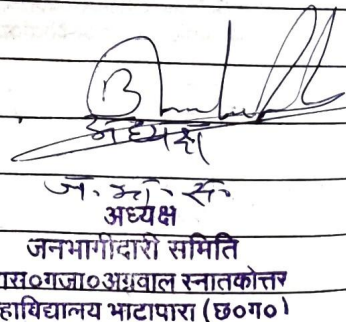 अध्यक्ष
ज. भा. स.
अध्यक्ष
जनभागीदारी समिति
ास०गजा०अग्रवाल स्नातकोत्तर
हाविद्यालय भाटापारा (छ०ग०)